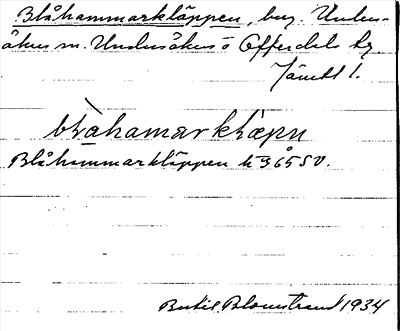 Blåhammarkläppen, berg. Under-
såkers sn. Undersåkers o Offerdals tg.
Jämtl l.
blàhamarklæpn
Blåhammarkläppen k 365 SV.
Bertil Blomstrand 1934